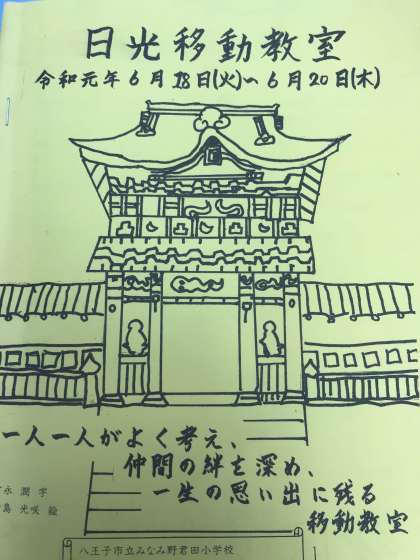 日光移動教室
令和元年6月18日(火)～6月20日(木)
一人一人がよく考え、
仲間の絆を深め、
一生の思い出に残る
移動教室
永 潤 字
島 光咲 絵
八王子市立みなみ野君田小学校